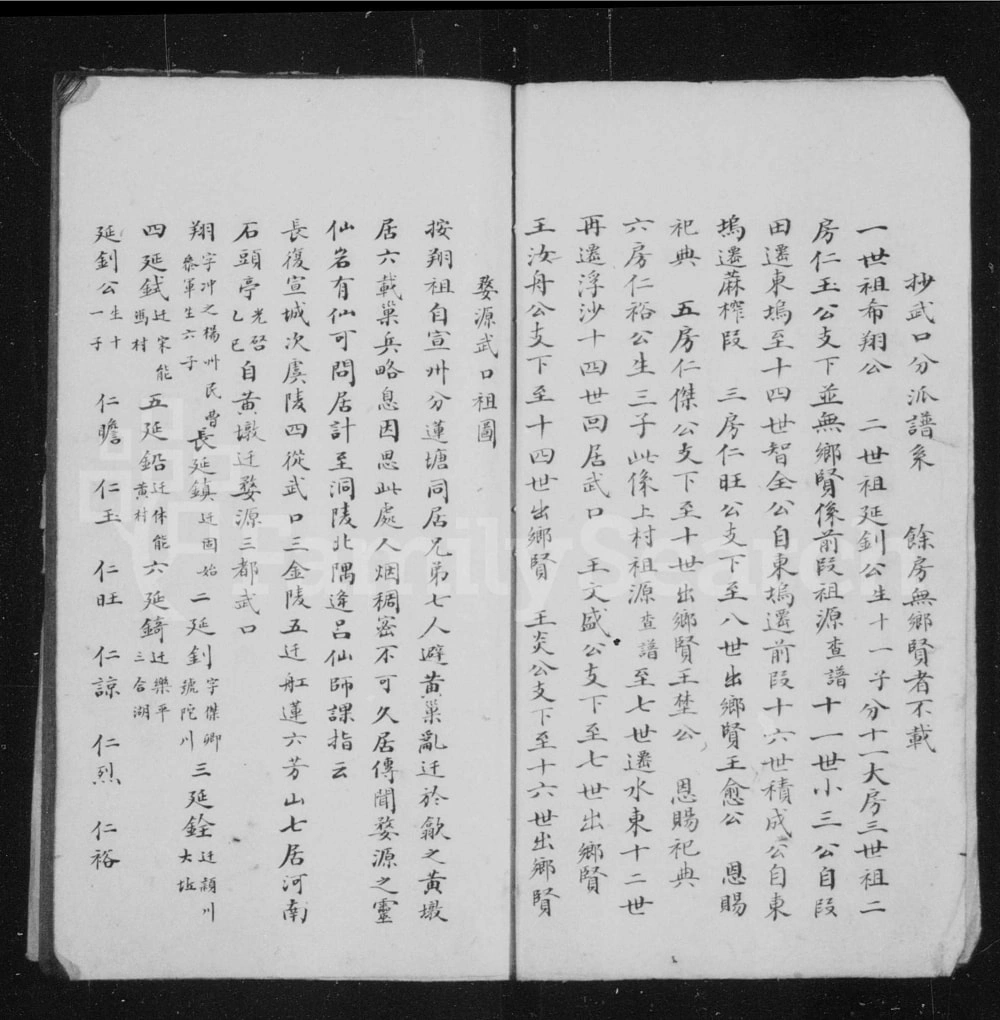 抄武口分派譜系　餘房無鄉賢者不載
一世祖希翔公　二世祖延釗公生十一子分十一大房三世祖二
房仁玉公支下並無鄉賢係前段祖源查譜十一世小三公自段
田遷東塢至十四世智全公自東塢遷前段十六世積成公自東
塢遷蔴榨段　三房仁旺公支下至八世出鄉賢王愈公　恩賜
祀典　五房仁傑公支下至十世出鄉賢王埜公　恩賜祀典
六房仁裕公生三子此係上村祖源查譜至七世遷水東十二世
再遷浮沙十四世回居武口　王文盛公支下至七世出鄉賢
王汝舟公支下至十四世出鄉賢　王炎公支下至十六世出鄉賢
婺源武口祖圖
按翔祖自宣州分蓮塘同居兄弟七人避黃巢亂迁於歙之黃墩
居六載巢兵略息因思此處人烟稠密不可久居傳聞婺源之靈
仙岩有仙可問居計至洞陵北隅逢呂仙師課指云
長復宣城次虞陵四從武口三金陵五迁舡蓮六芳山七居河南
石頭亭光啓乙巳自黃墩迁婺源三都武口
翔字冲之楊州民曹參軍生六子　長延鎮迁固始　二延釗字傑卿號陀川　三延銓迁頴川大坵
四延鉞迁宋能馮村　五延鉛迁休能黃村　六延錡迁樂平三合湖
延釗公生十一子　仁瞻　仁玉　仁旺　仁諒　仁烈　仁裕
FamilySearch